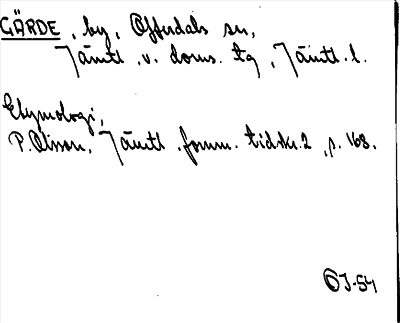 GÄRDE, by, Offerdals sn,
Jämtl. v. doms. tg, Jämtl. l.
Etymologi,
P. Olsson, Jämtl. fornm. tidskr. 2, p. 168.
OJ-54